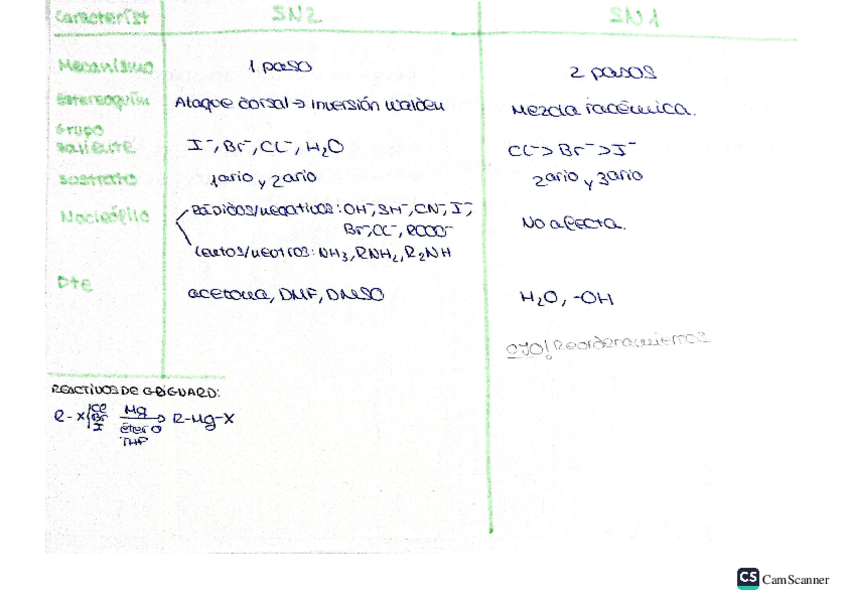 Característ SN2 SN1
Mecanismo 1 paso 2 pasos
Estereoquím Ataque dorsal → inversión walden Mezcla racémica.
Grupo
saliente I⁻, Br⁻, Cl⁻, H₂O Cl⁻ > Br⁻ > I⁻
sustrato 1ario y 2ario 2ario y 3ario
Nucleófilo Rápidos/negativos: OH⁻, SH⁻, CN⁻, I⁻, No afecta.
Br⁻, Cl⁻, RCOO⁻
Lentos/neutros: NH₃, RNH₂, R₂NH
Dte acetona, DMF, DMSO H₂O, -OH
OJO! Reordenamientos
REACTIVOS DE GRIGNARD:
R-X Cl Br I Mg éter o THF → R-Mg-X
CS CamScanner